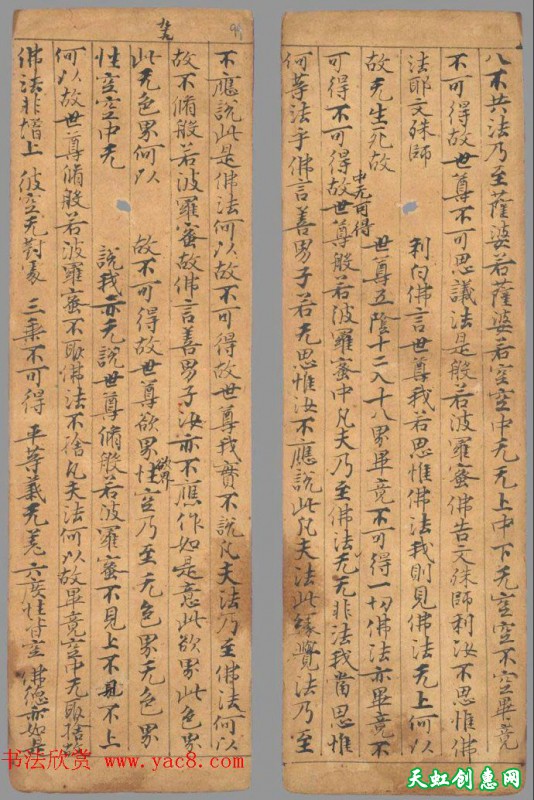 八不共法乃至薩婆若薩婆若空空中无无上中下无空空不空畢竟
不可得故世尊不可思議法是般若波羅蜜佛告文殊師利汝不思惟佛
法耶文殊師 利白佛言世尊我若思惟佛法我則見佛法无上何以
故无生死故 世尊五陰十二入十八界畢竟不可得一切佛法亦畢竟不
中无可得
可得不可得故世尊般若波羅蜜中凡夫乃至佛法无无非法我當思惟
何等法乎佛言善男子若无思惟汝不應說此凡夫法此緣覺法乃至
不應說此是佛法何以故不可得故世尊我實不說凡夫法乃至佛法何以
故不脩般若波羅蜜故佛言善男子汝亦不應作如是意此欲界此色界
欲界
此无色界何以 故不可得故世尊欲界性空乃至无色界无色界
性空空中无 說我亦无說世尊脩般若波羅蜜不見上不見不上
何以故世尊脩般若波羅蜜不取佛法不捨凡夫法何以故畢竟空中无取捨
佛法非增上 彼空无對 三乘不可得 平等義无 六度性皆空 佛德亦如是
书法欣赏 www.yac8.com
天虹创惠网